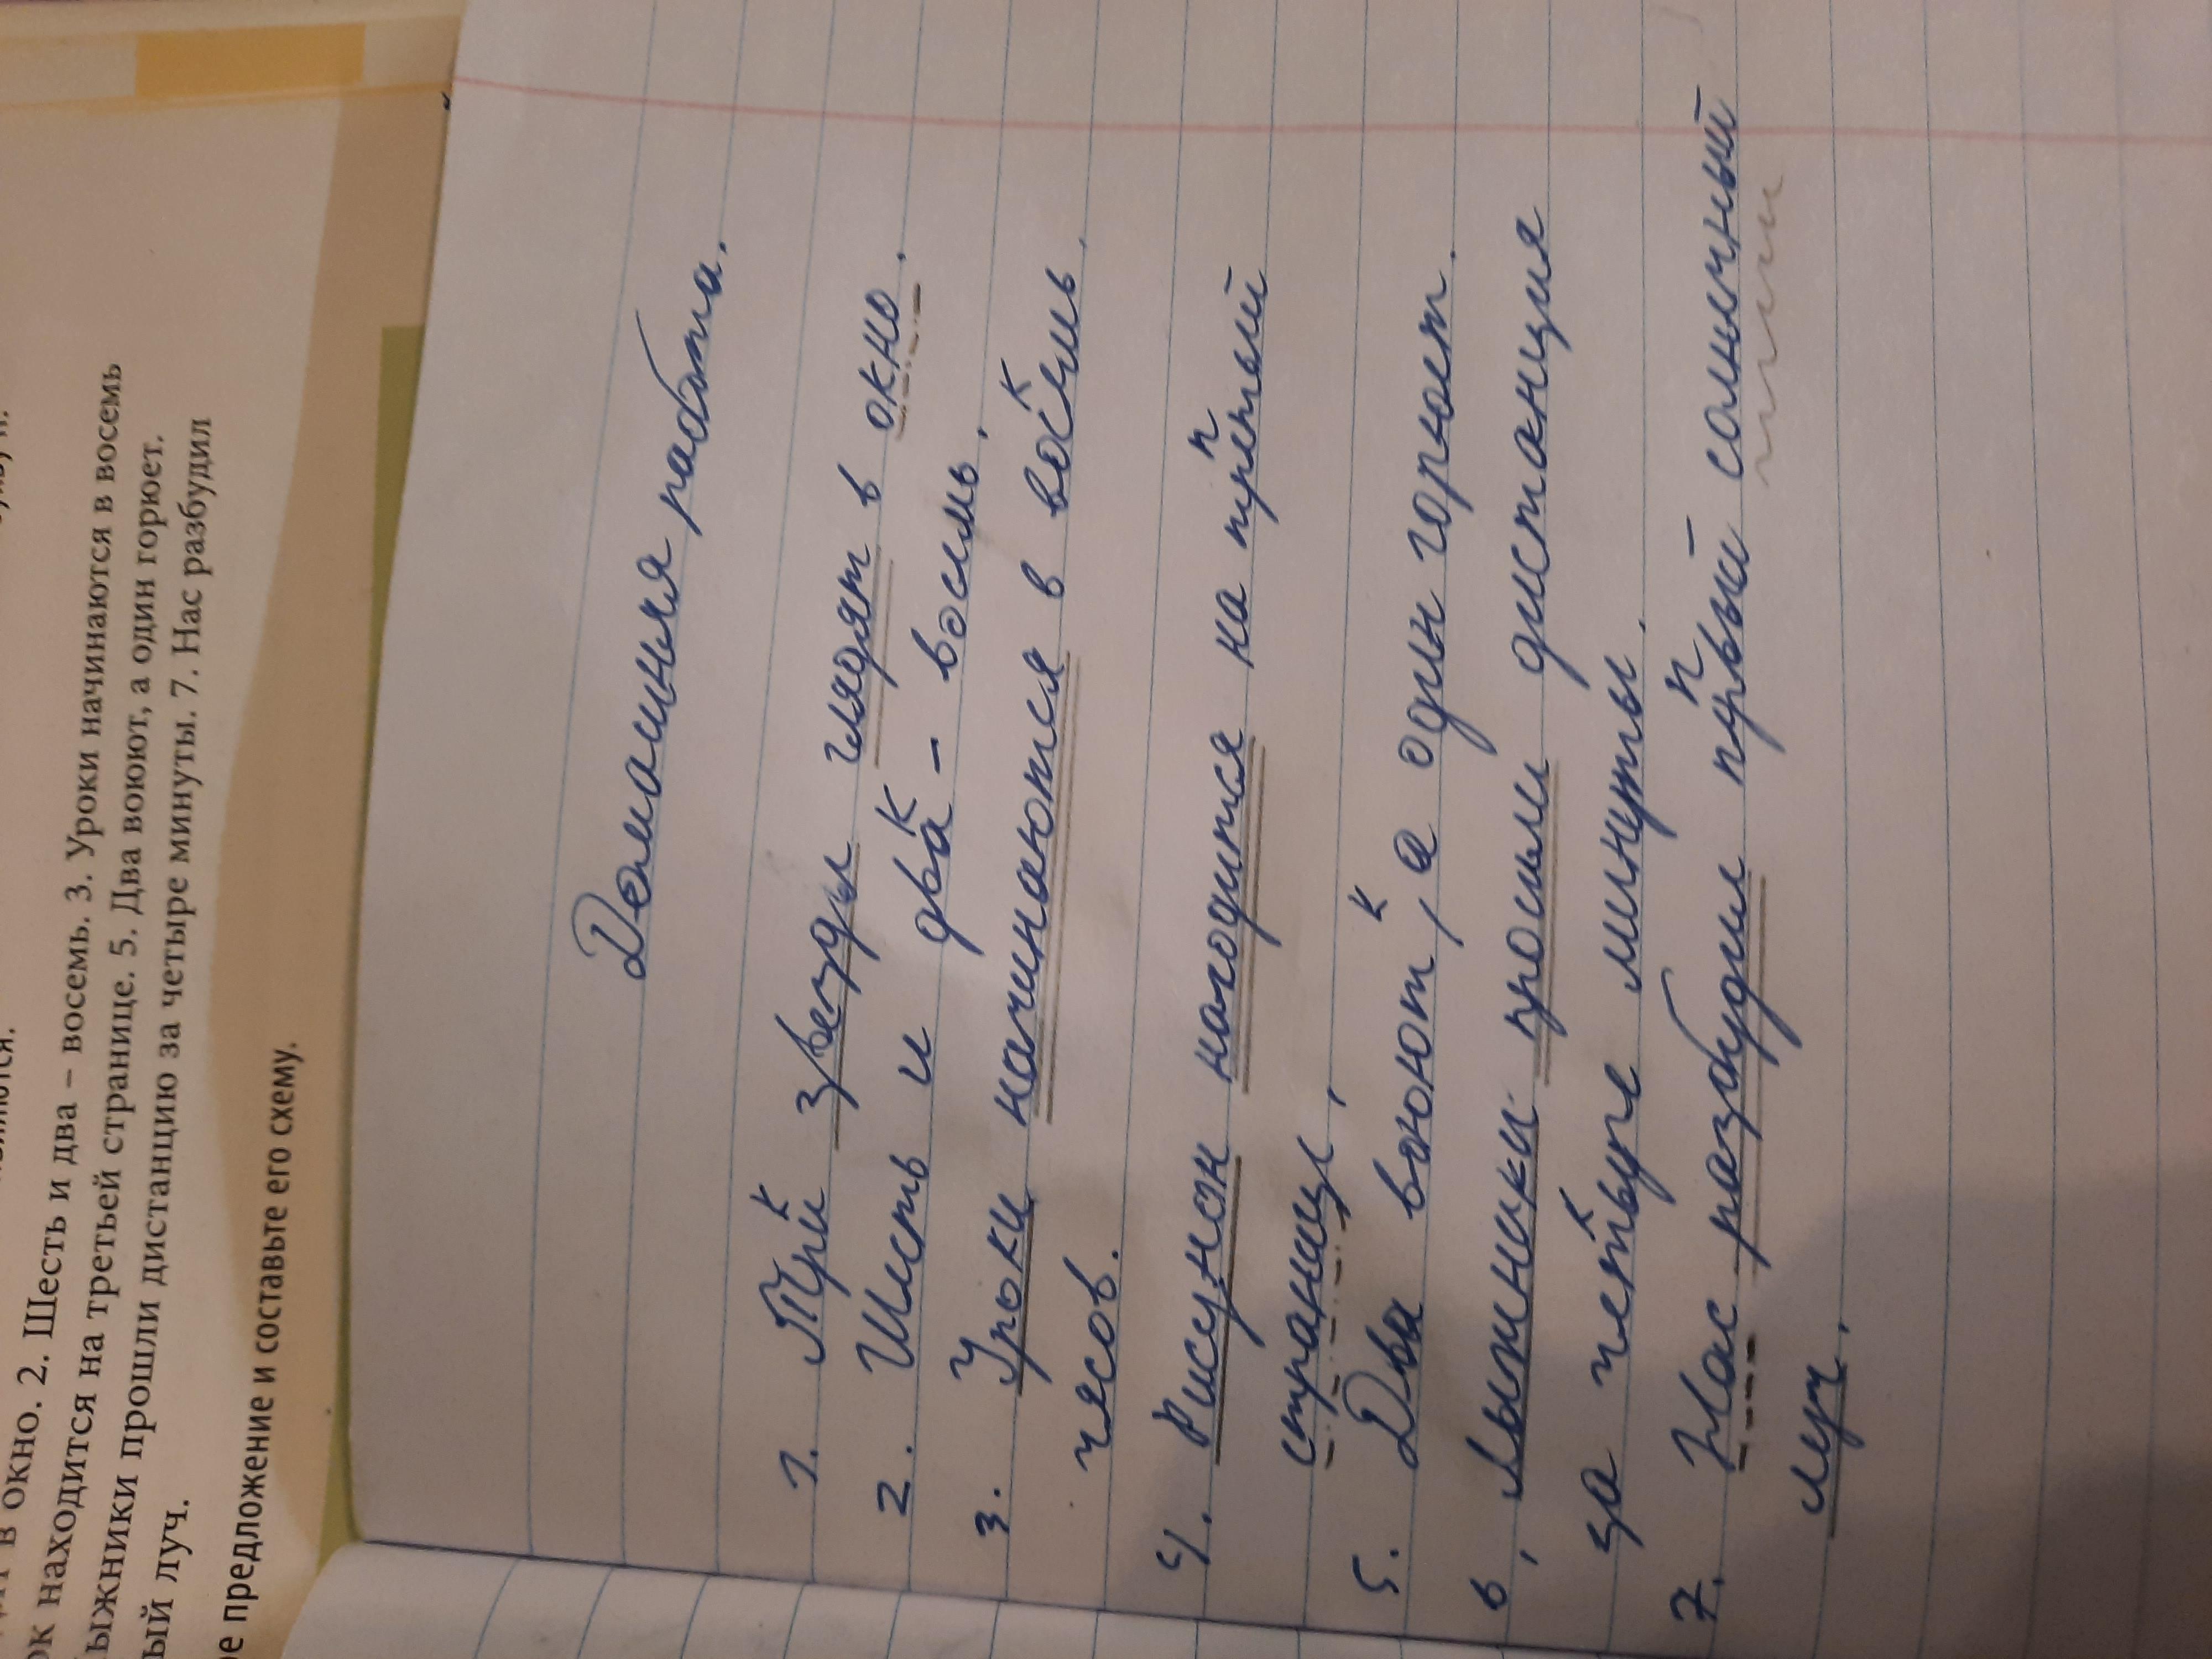 ок находится на третьей странице. 5. Два воюют, а один горюет.
ыжники прошли дистанцию за четыре минуты. 7. Нас разбудил
ый луч.
ое предложение и составьте его схему.
в окно. 2. Шесть и два – восемь. 3. Уроки начинаются в восемь
Домашняя работа.
1. Три к звезды глядят в окно.
2. Шесть и два к – восемь.
3. Уроки начинаются в восемь к
часов.
4. Рисунок находится на третьей п
странице.
5. Два воюют, к а один горюет.
6. Лыжники прошли дистанция
за четыре к минуты.
7. Нас разбудил п солнечный
луч.